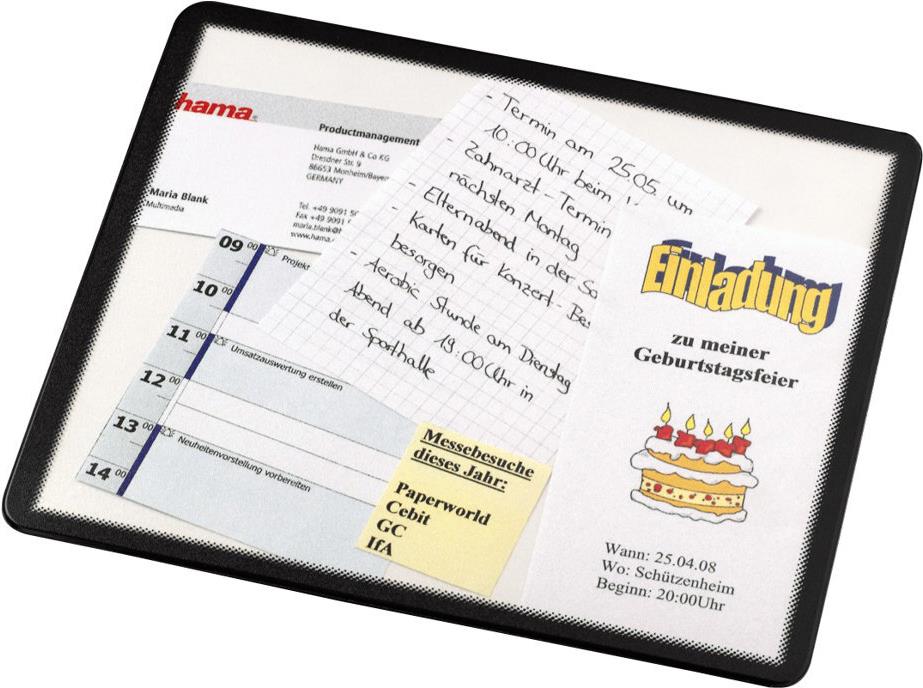 hama
Productmanagement
Hama GmbH & Co KG
Dresdner Str. 9
86653 Monheim/Bayern
GERMANY
Maria Blank
Multimedia
Tel. +49 9091 50
Fax +49 9091
maria.blank@h
www.hama.
09 00
Projekt
10 00
11 00
Umsatzauswertung erstellen
12 00
13 00
Neuheitenvorstellung vorbereiten
14 00
- Termin am 25.05. um
10:00 Uhr beim
- Zahnarzt - Termin
nächsten Montag
- Elternabend in der Sc
- Karten für Konzert - Bes
besorgen
- Aerobic Stunde am Dienstag
Abend ab 19:00 Uhr in
der Sporthalle
Messebesuche
dieses Jahr:
Paperworld
Cebit
GC
IfA
Einladung
zu meiner
Geburtstagsfeier
Wann: 25.04.08
Wo: Schützenheim
Beginn: 20:00Uhr